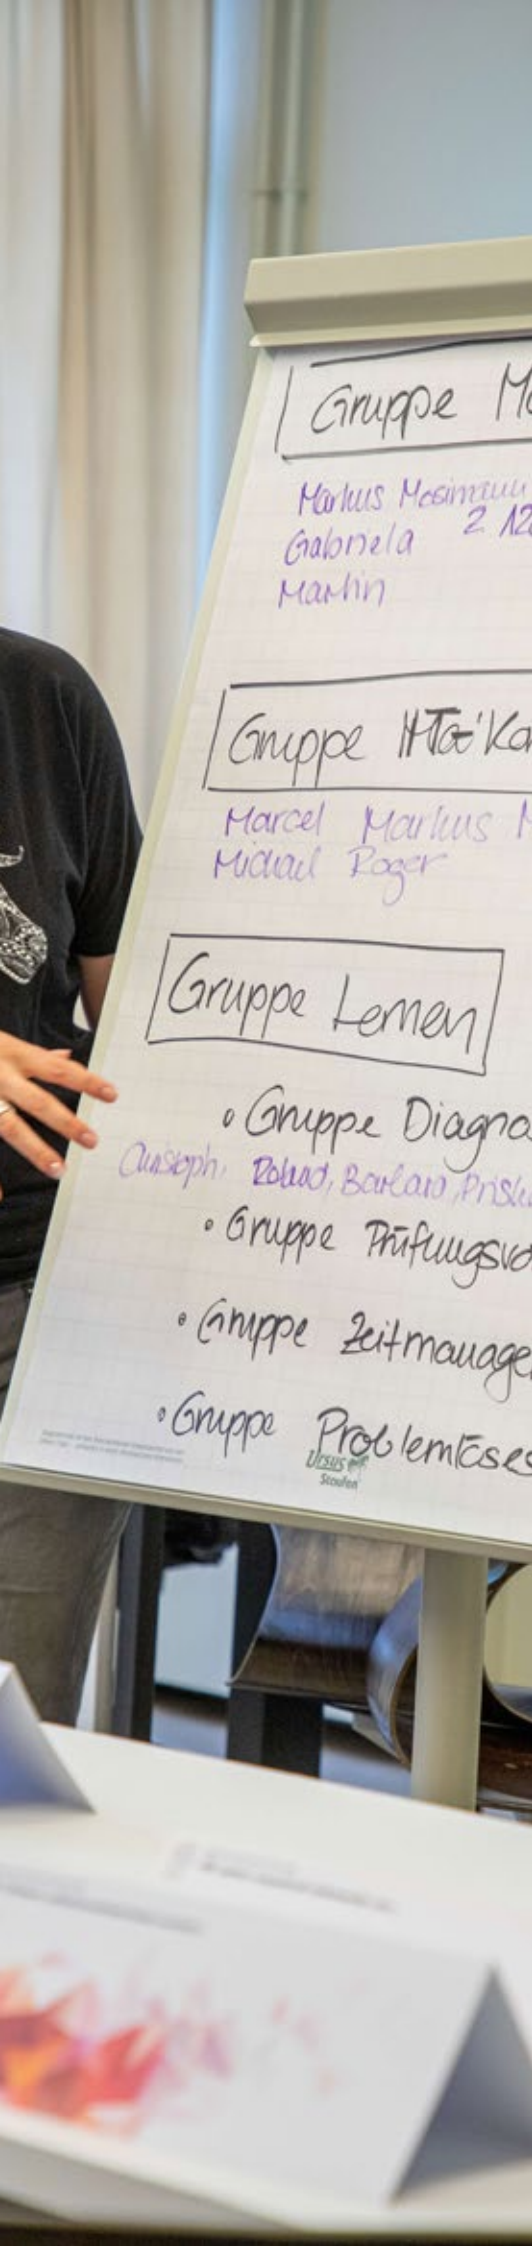 Gruppe Mo
Markus Mosimann
Gabriela 2 12
Martin
Gruppe
Marcel Markus M
Michael Roger
Gruppe Lernen
• Gruppe Diagno
Christoph, Roland, Barbara, Prisk
• Gruppe Prüfungsvo
• Gruppe Zeitmanage
• Gruppe Problemlöses
Ursus
Staufen